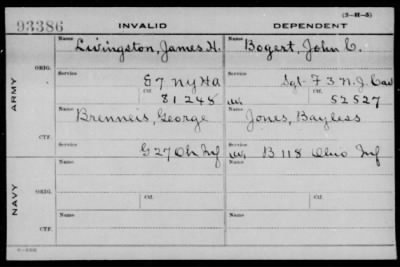 (3-H-5)
93386 INVALID DEPENDENT
Name Livingston, James H. Name Bogert, John C.
ORIG. Service G 7 N Y HA Service Sgt F 3 N. J. Cav
Ctf. 81245 Ctf. 52527
ARMY
Name Brenneis, George Name Jones, Bayless
CTF. Service G 27 Oh Inf Service B 118 Ohio Inf
NAVY
Name Name
ORIG. Service Ctf. Service Ctf.
Name Name
CTF.